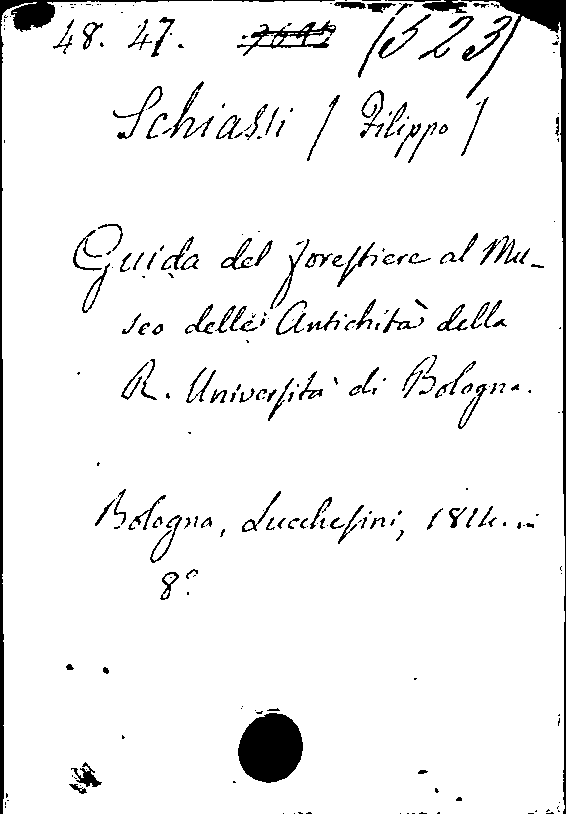 48. 47. (523)
Schiassi / Filippo /
Guida del forestiere al Mu-
seo delle Antichità della
R. Università di Bologna.
Bologna, Lucchesini, 1814. in
8°